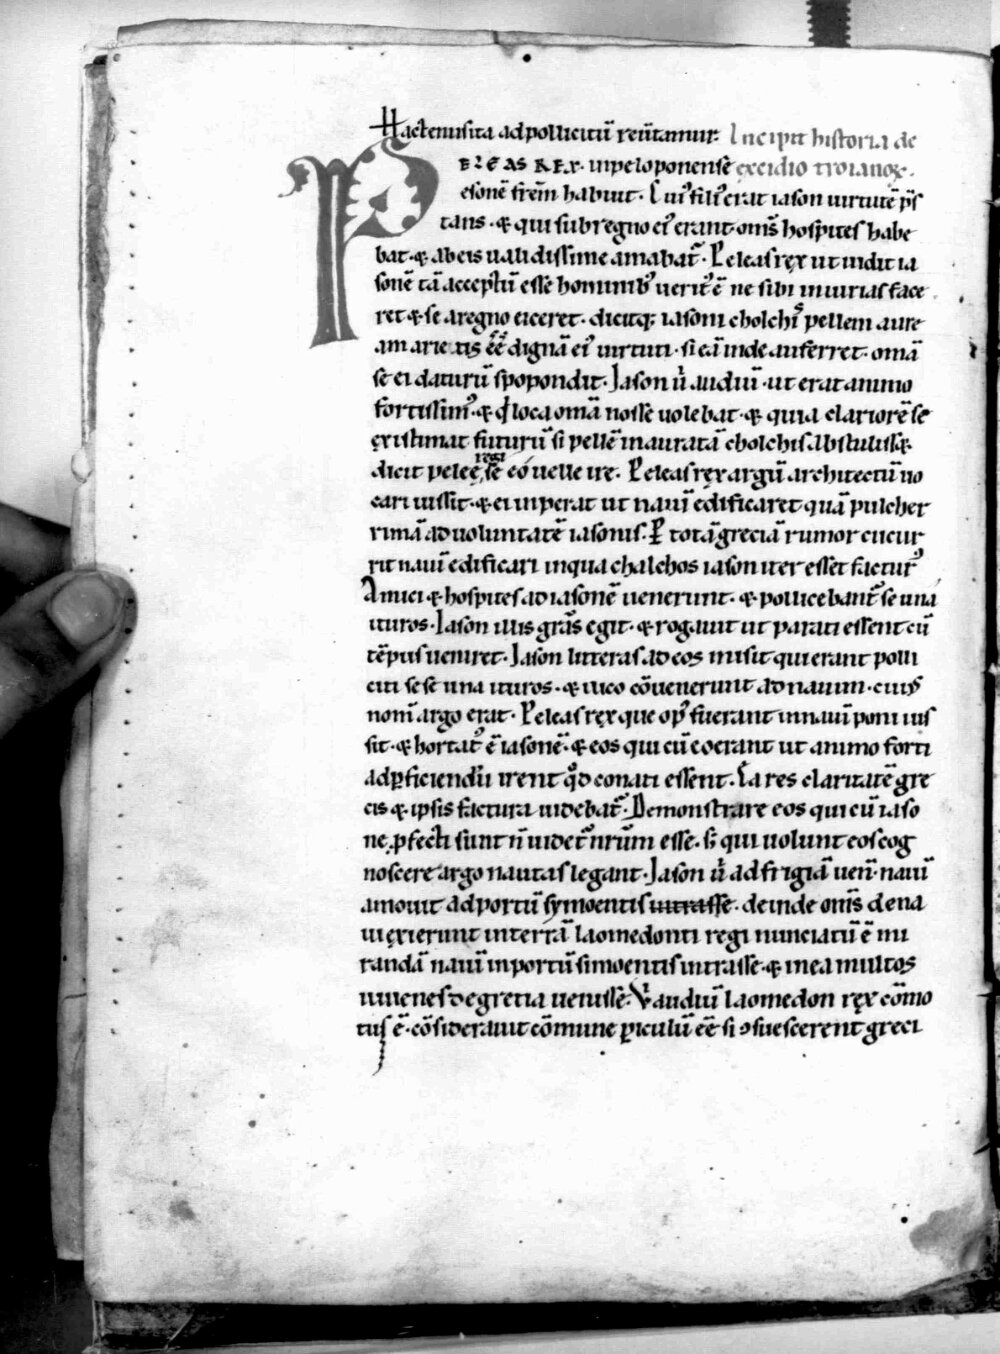 Hactenus ita ad pollicitū reũtamur. Incipit historia de
PELEAS REX. in peloponense excidio troianoꝝ.
esonē frēm habuit. Cuiꝰ filiꝰ erat iason uirtutē p̄s
tans. & qui sub regno eiꝰ erant. om̄s hospites habe
bat. & ab eis ualidissime amabat᷑. Peleas ręx ut uidit ia
sonē tā acceptū esse homnibꝰ uerit᷒ ē ne sibi iniurias face
ret & se a regno eiceret. dicitq; iasoni cholchis pellem aure
am arietis ēē dignā eiꝰ uirtuti. si eā inde auferret. omā
se ei daturū spopondit. Jason ũ audiuī. ut erat animo
fortissimꝰ. & qđ loca omā nosse uolebat. & quia clariorē se
ęxistimat futurū si pellē inauratā cholchis abstulisseꝗ
dicit peleę regi se eo uelle ire. Peleas ręx argū architectū uo
cari iussit. & ei inperat ut nauī edificaret quā pulcher
rimā ad uoluntatē iasonis. P totā greciā rumor cucur
rit nauī edificari in qua chalchos iason iter esset facturꝰ
Amici & hospites ad iasonē uenerunt. & pollicebant᷑ se una
ituros. Iason illis grās egit. & rogauit ut parati essent cū
tēpus ueniret. Jason litteras ad eos misit qui erant polli
citi sese una ituros. & ilico cōuenerunt ad nauim. cuiꝰ
nom̄ argo erat. Peleas ręx que opꝰ fuerant in nauī poni ius
sit. & hortatꝰ ē iasonē. & eos qui cū eo erant ut animo forti
ad ꝑficiendū irent qđ conati essent. Ea res claritatē gre
cis & ipsis factura uidebat᷑. Demonstrare eos qui cū iaso
ne ꝓfecti sunt n̄ uidet᷑ nr̄um esse. s; qui uolunt eos cog
noscere argonautas legant. Jason ũ ad frigiā uen̄. nauī
amouit ad portū symoentis intrasse. deinde om̄s de na
ui ęxierunt in terrā. laomedonti regi nunciatū ē mi
randā nauī in portū simoentis intrasse. & in ea multos
iuuenes de gretia uenisse. V audiuī laomedon ręx cōmo
tus ē. cōsiderauit cōmune ꝑiculū ēē si ꝯsuescerent greci